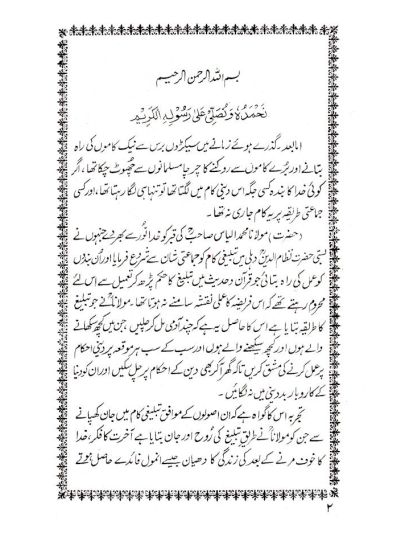 بسم اللہ الرحمن الرحیم
نَحْمَدُہٗ وَنُصَلِّیْ عَلٰی رَسُوْلِہِ الْکَرِیْمِ
امابعد۔ گذرے ہوئے زمانے میں سیکڑوں برس سے نیک کاموں کی راہ
بتانے اور بُرے کاموں سے روکنے کا چرچا مسلمانوں سے چھوٹ چکا تھا، اگر
کوئی خدا کا بندہ کسی جگہ اس دینی کام میں لگتا تھا تو تنہا سی لگا رہتا تھا، اور کسی
جماعتی طریقہ پر یہ کام جاری نہ تھا۔
(حضرت) مولانا محمد الیاس صاحبؒ کی قبر کو خدا نُور سے بھر دے جنہوں نے
بستی حضرت نظام الدینؒ دہلی میں تبلیغی کام کو جماعتی شان سے شروع فرمایا اور اُن بندوں
کو عمل کی راہ بتائی جو قرآن و حدیث میں تبلیغ کا حکم پڑھ کر تعمیل سے اس لئے
محروم رہتے تھے کہ اس فریضہ کا عملی نقشہ سامنے نہ ہوتا تھا۔ مولاناؒ نے جو تبلیغ
کا طریقہ بتایا ہے اس کا حاصل یہ ہے کہ چند آدمی مل کر چلیں جن میں کچھ سکھانے
والے ہوں اور کچھ سیکھنے والے ہوں اور سب کے سب ہر موقعہ پر دینی احکام
پر عمل کرنے کی مشق کریں تاکہ گھر آکر بھی دین کے احکام پر چل سکیں اور ان کو دنیا
کے کاروبار بد دینی میں نہ لگائیں۔
تجربہ اس کا گواہ ہے کہ ان اصولوں کے موافق تبلیغی کام میں جان کھپانے
سے جن کو مولاناؒ نے طریقِ تبلیغ کی رُوح اور جان بتایا ہے آخرت کا فکر، خدا
کا خوف مرنے کے بعد کی زندگی کا دھیان جیسے انمول فائدے حاصل ہوتے
۲